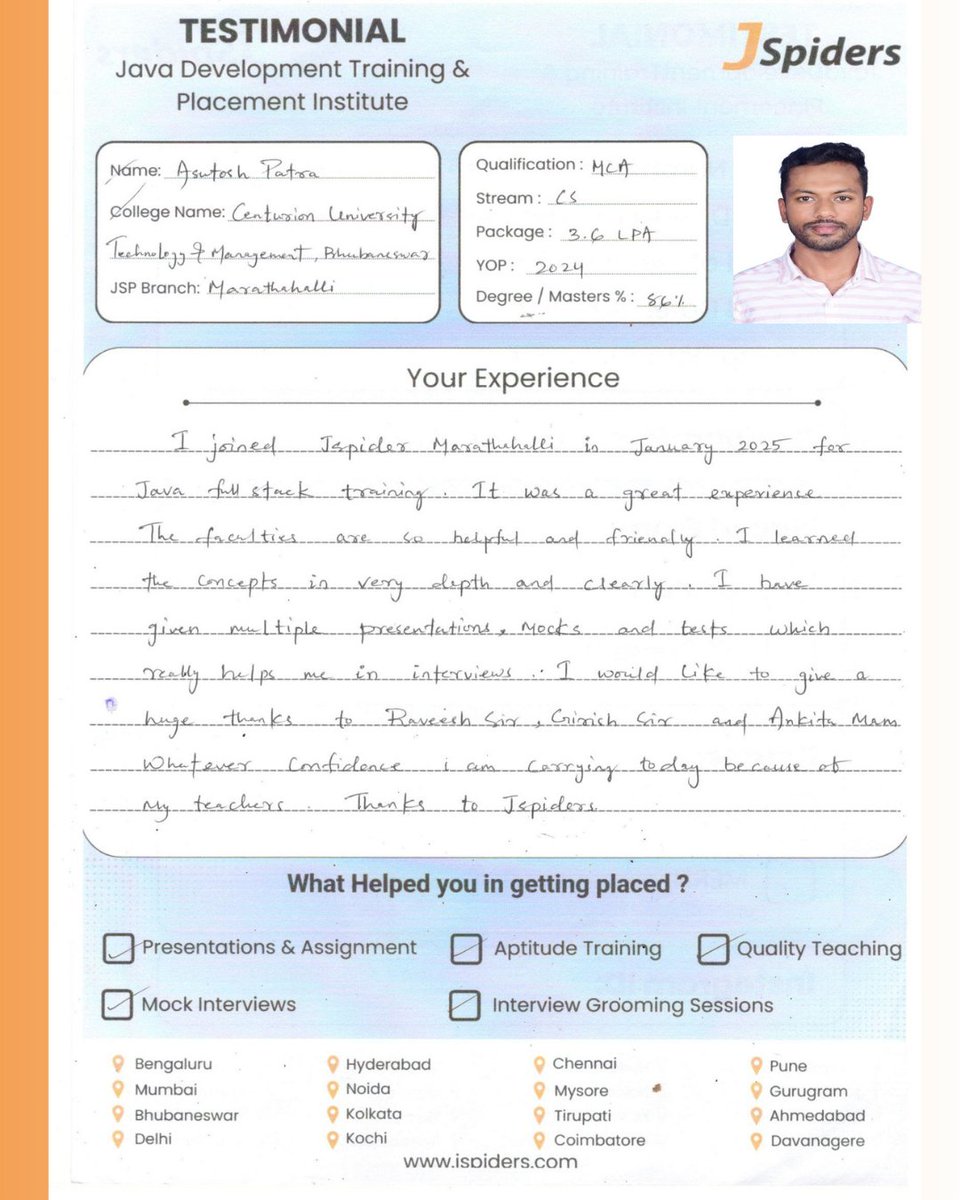 TESTIMONIAL
Java Development Training &
Placement Institute
JSpiders
Name: Asutosh Patra
College Name: Centurion University
Technology & Management, Bhubaneswar
JSP Branch: Marathahalli
Qualification : MCA
Stream : CS
Package : 3.6 LPA
YOP : 2024
Degree / Masters % : 86%
Your Experience
I joined Jspider Marathahalli in January 2025 for
Java full stack training. It was a great experience
The faculties are so helpful and friendly. I learned
the concepts in very depth and clearly. I have
given multiple presentations, Mocks and tests which
really helps me in interviews. I would like to give a
huge thanks to Raveesh Sir, Girish Sir and Ankita Mam
Whatever confidence i am carrying today because of
my teachers. Thanks to Jspiders.
What Helped you in getting placed ?
Presentations & Assignment
Aptitude Training
Quality Teaching
Mock Interviews
Interview Grooming Sessions
Bengaluru
Mumbai
Bhubaneswar
Delhi
Hyderabad
Noida
Kolkata
Kochi
Chennai
Mysore
Tirupati
Coimbatore
Pune
Gurugram
Ahmedabad
Davanagere
www.jspiders.com